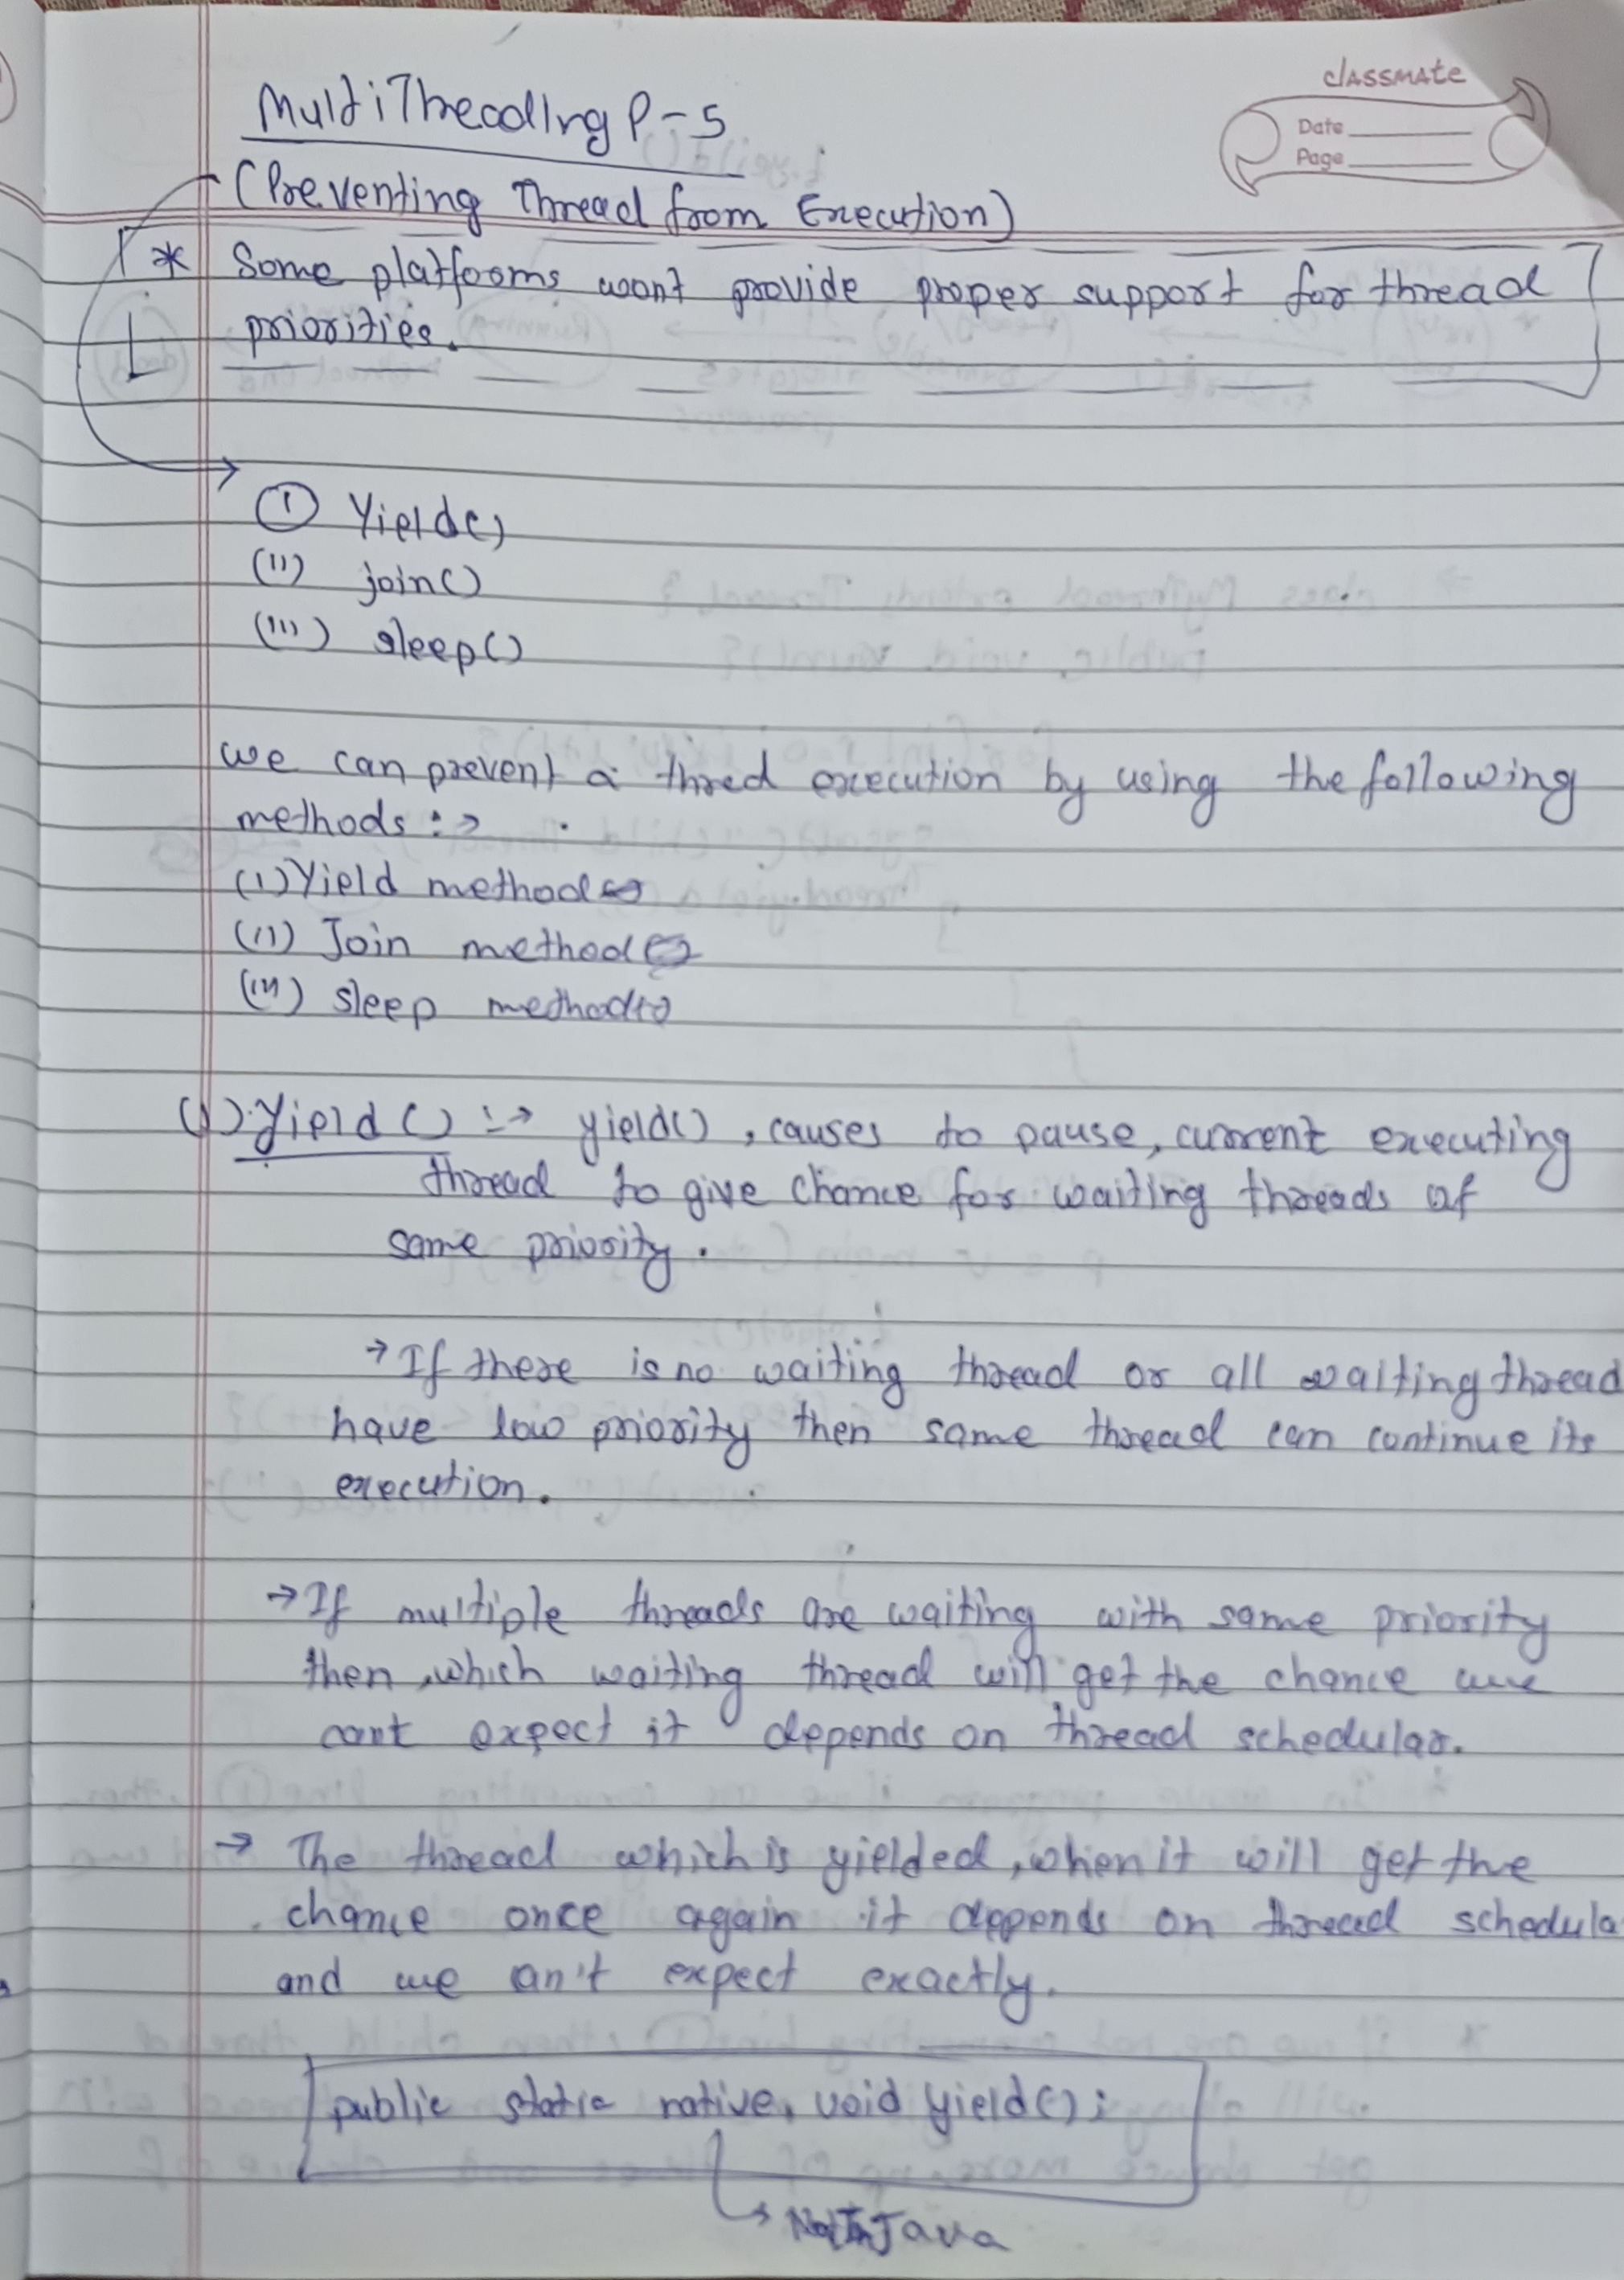 MultiThreading P-5
classmate
Date
Page
(Preventing Thread from Execution)
* Some platforms wont provide proper support for thread
priorities.
(I) Yield()
(II) join()
(III) sleep()
we can prevent a thred execution by using the following
methods :->
(I) Yield method
(II) Join method
(III) sleep method
(I) Yield() :-> yield(), causes to pause, current executing
thread to give chance for waiting threads of
same priority.
-> If there is no waiting thread or all waiting thread
have low priority then same thread can continue its
execution.
-> If multiple threads are waiting with same priority
then, which waiting thread will get the chance we
can't expect it depends on thread schedular.
-> The thread which is yielded, when it will get the
chance once again it depends on thread schedula
and we can't expect exactly.
public static native void yield();
-> Not In Java